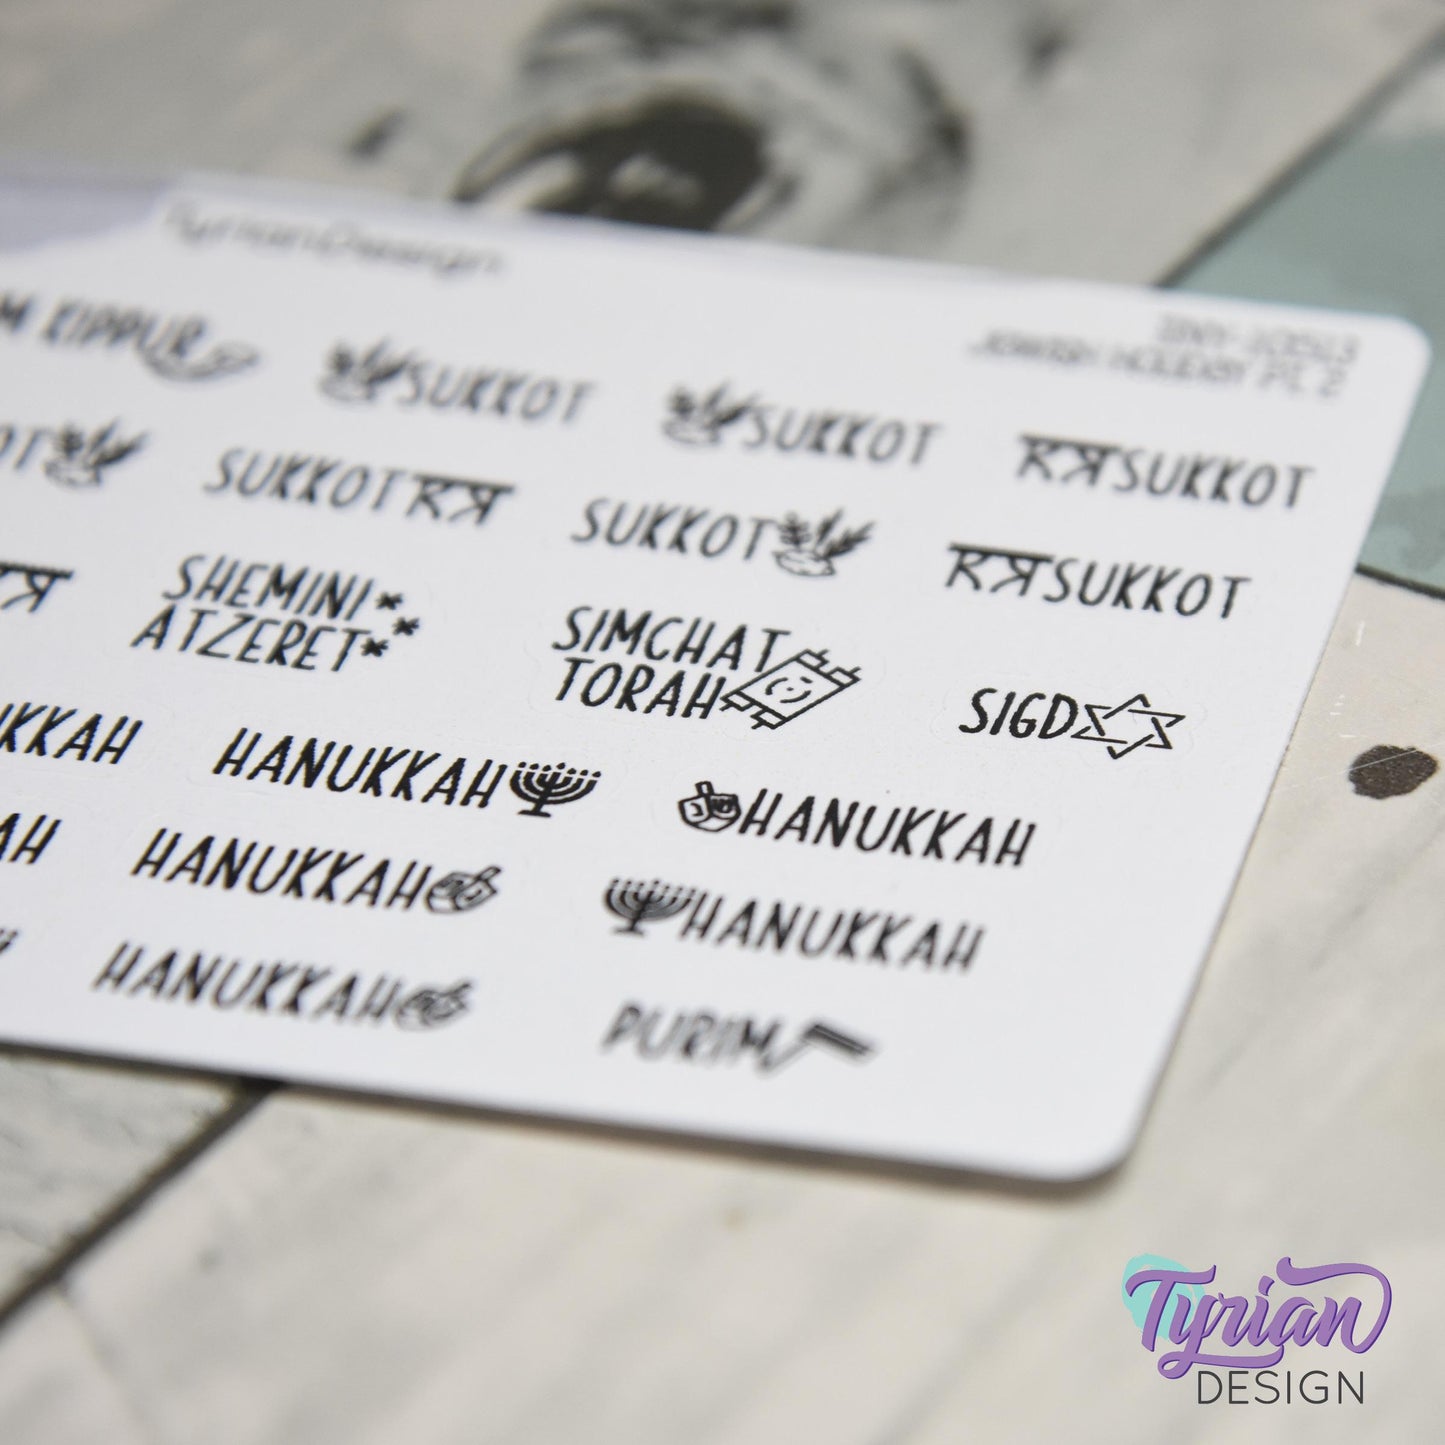 TyrianDesign
JEWISH HOLIDAY PT. 2
M KIPPUR
SUKKOT
SUKKOT
SUKKOT
OT
SUKKOT
SUKKOT
SUKKOT
SHEMINI
ATZERET
SIMCHAT
TORAH
SIGD
UKKAH
HANUKKAH
HANUKKAH
AH
HANUKKAH
HANUKKAH
HANUKKAH
PURIM
Tyrian
DESIGN